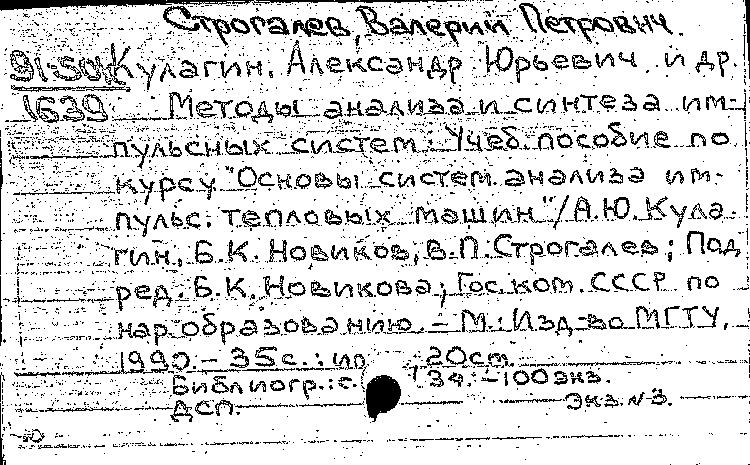 Строгалев, Валерий Петрович.
Кулагин, Александр Юрьевич и др.
1639 Методы анализа и синтеза им-
пульсных систем: Учеб. пособие по
курсу "Основы систем. анализа им-
пульс. тепловых машин"/А.Ю. Кула-
гин, Б.К. Новиков, В.П. Строгалев; Под
ред. Б.К. Новикова; Гос. ком. СССР по
нар образованию. - М.: Изд-во МГТУ,
1990. - 35 с.: ил 20 см.
Библиогр.: с. 34. - 100 экз.
ДСП. Экз. № 3.